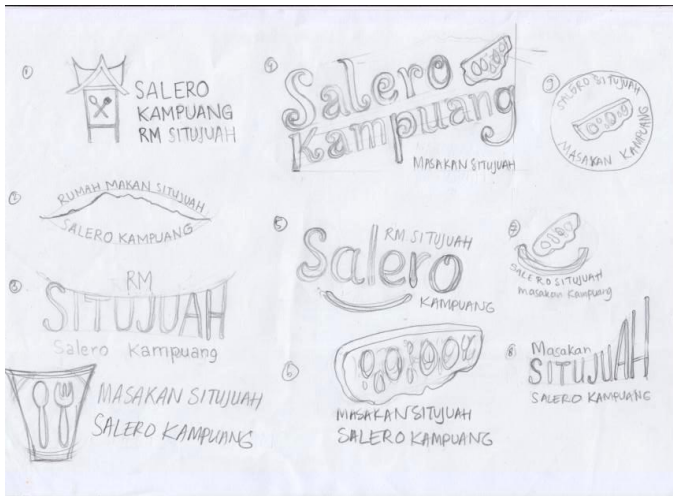 1
SALERO
KAMPUANG
RM SITUJUAH
2
RUMAH MAKAN SITUJUAH
SALERO KAMPUANG
3
RM
SITUJUAH
Salero Kampuang
MASAKAN SITUJUAH
SALERO KAMPUANG
4
Salero
Kampuang
MASAKAN SITUJUAH
5
RM SITUJUAH
Salero
KAMPUANG
6
MASAKAN SITUJUAH
SALERO KAMPUANG
7
SALERO SITUJUAH
MASAKAN KAMPUANG
SALERO SITUJUAH
Masakan Kampuang
8
Masakan
SITUJUAH
SALERO KAMPUANG